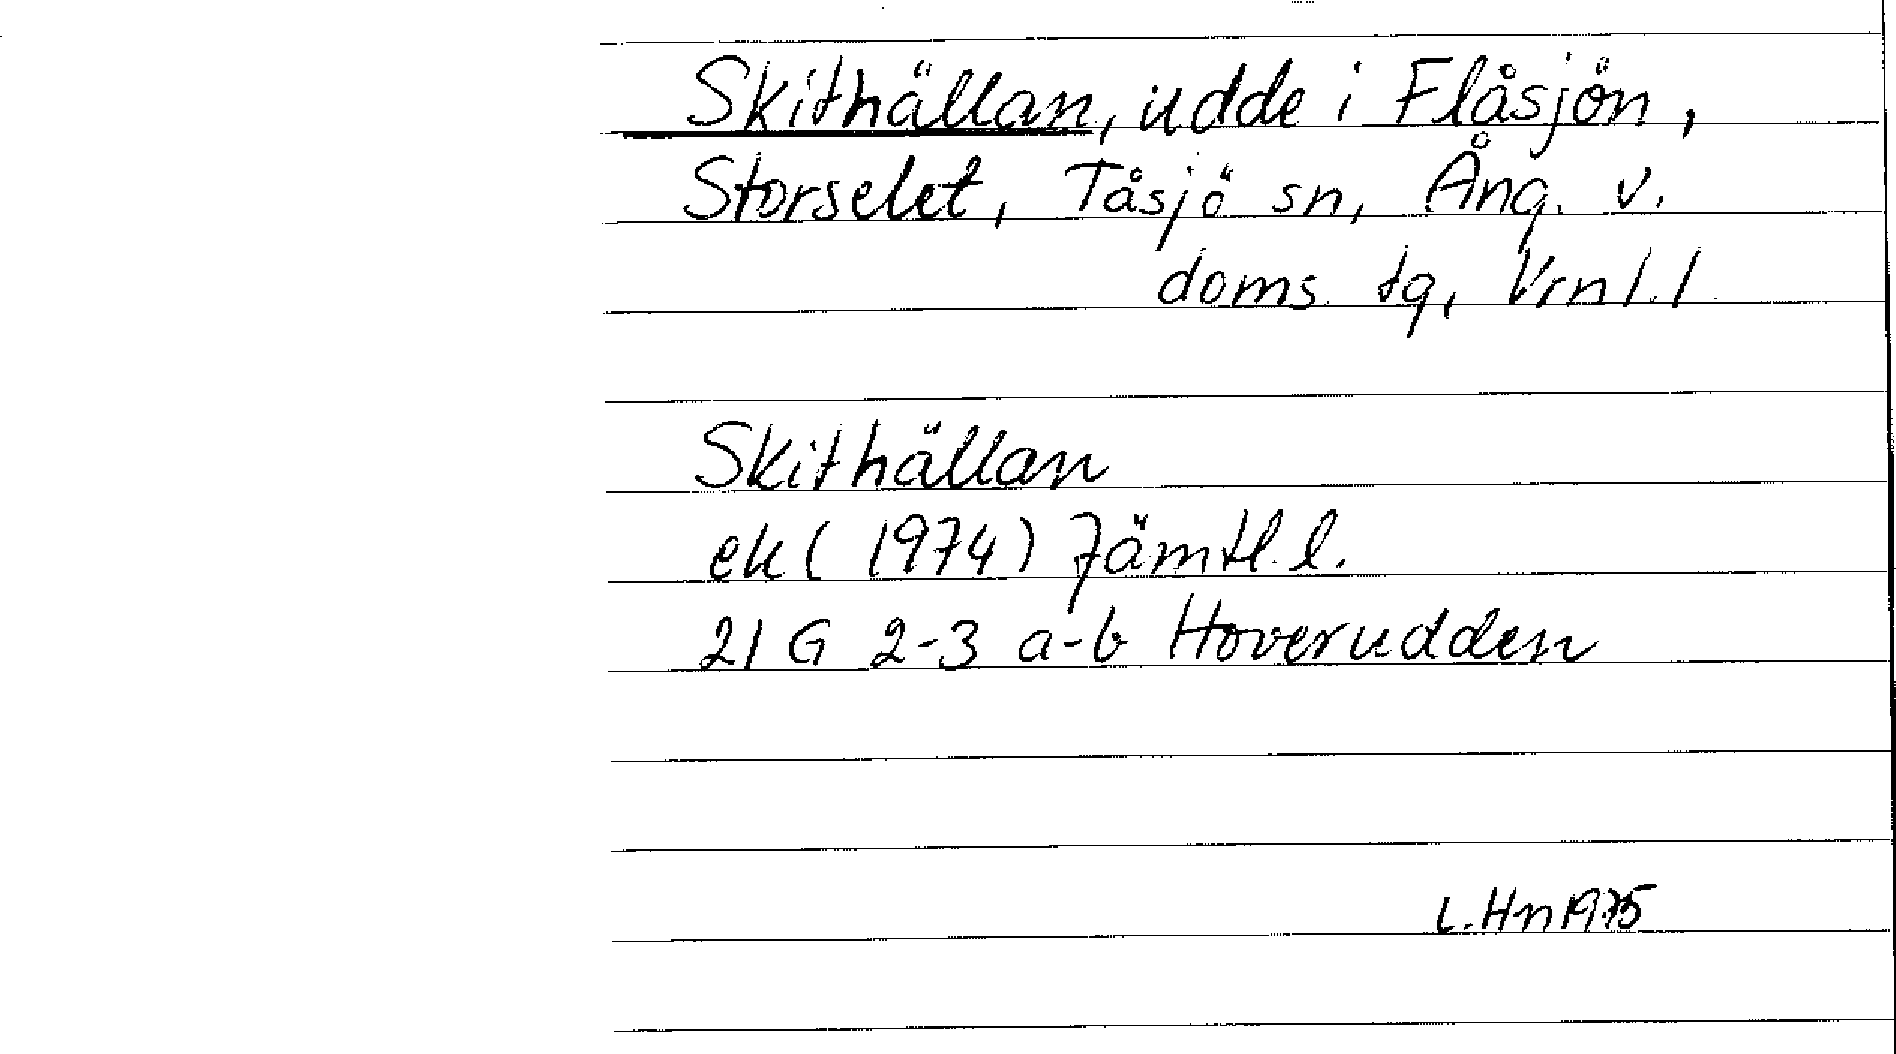 Skithällan, udde i Flåsjön,
Storselet, Tåsjö sn, Ång. v.
doms. tg, Vrnl.l
Skithällan
ek ( 1974) Jämtl. l.
21 G 2-3 a-b Hoverudden
L. Hn 1975